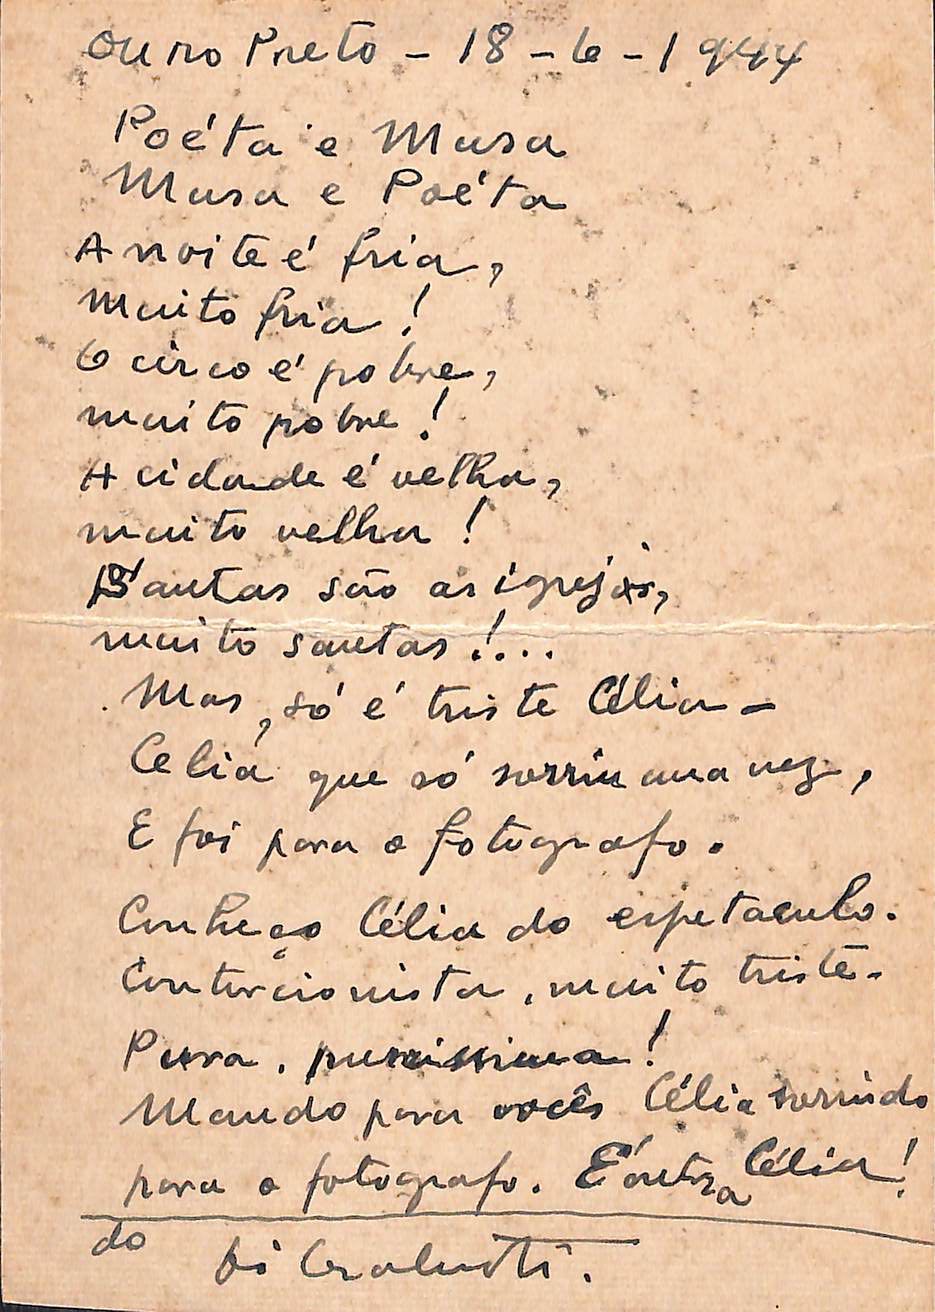 Ouro Preto - 18 - 6 - 1944
Poéta e Musa
Musa e Poéta
A noite é fria,
muito fria!
O circo é pobre,
muito pobre!
A cidade é velha,
muito velha!
Santas são as igrejas,
muito santas!...
Mas, só é triste Célia -
Celia que só sorriu uma vez,
E foi para o fotografo.
Conheço Célia do espetaculo.
Contorcionista, muito triste.
Pura, purissima!
Mando para vocês Célia sorrindo
para o fotografo. É outra Célia!
do